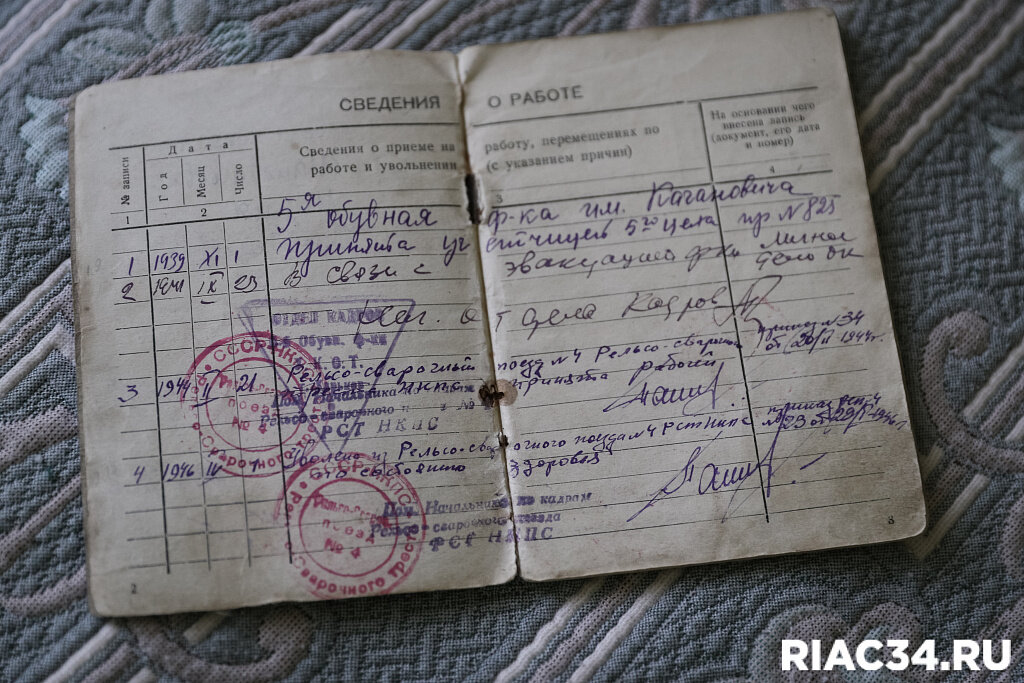 СВЕДЕНИЯ О РАБОТЕ
№ записи
Дата
Год
Месяц
Число
Сведения о приеме на работу, перемещениях по
работе и увольнении (с указанием причин)
На основании чего
внесена запись
(документ, его дата
и номер)
1 2 3 4
5я обувная ф-ка им. Кагановича
1 1939 XI 1 Принята учетчицей 5го цеха пр N 825
2 1941 IX 23 В связи с эвакуацией ф-ки Личное
дело ок
ОТДЕЛ КАДРОВ
Нач. отдела Кадров
Обувн. ф-ки
3 1944 II 21 Рельсо-сварочный поезд N4 Рельсо-сварочн
НКПС принята рабочей
приказ N34
от 20/II 1944г.
Пом. Начальника
Рельсо-сварочного
РСТ НКПС
СССР НКПС
Рельсо-свароч.
поезд
№ 4
Сварочного треста
4 1946 IV 1 Уволена из Рельсо-сварочного поезда N4 РСТ НКПС
по состоянию здоровья
N 23 от 29/
Пом. Начальника по кадрам
Рельсо-сварочного поезда
РСТ НКПС
СССР НКПС
Рельсо-свароч.
поезд
№ 4
Сварочного треста
2
3
RIAC34.RU